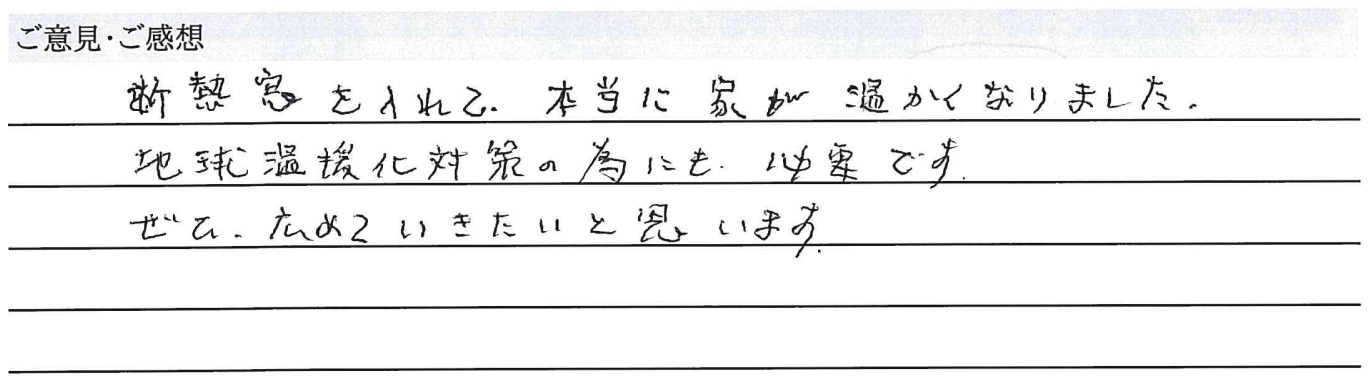 ご意見・ご感想
断熱窓を入れて、本当に家が温かくなりました。
地球温暖化対策の為にも、必要です。
ぜひ、広めていきたいと思います。